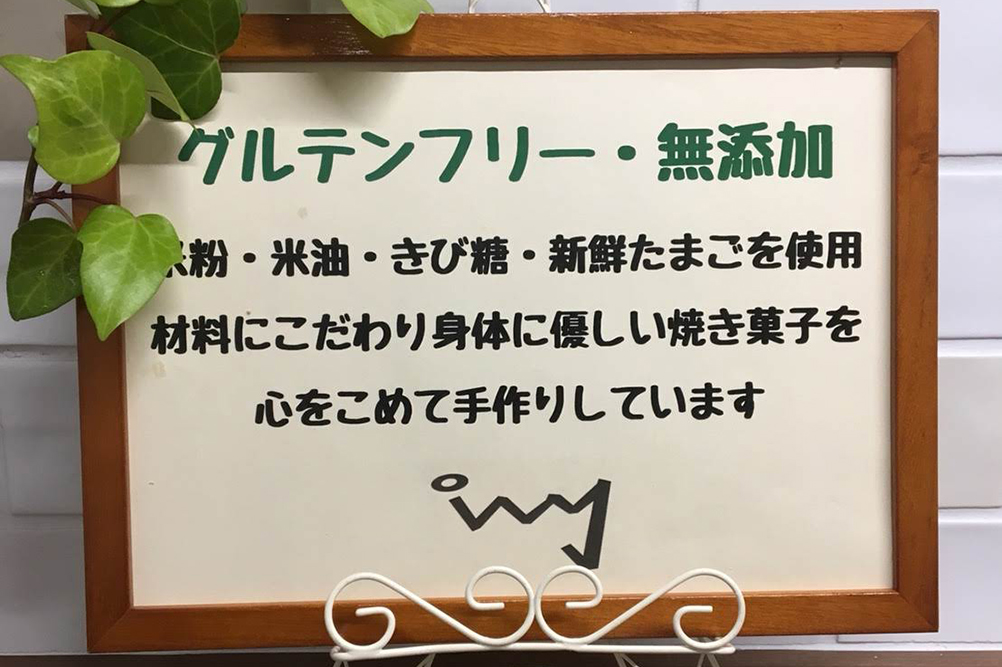 グルテンフリー・無添加
米粉・米油・きび糖・新鮮たまごを使用
材料にこだわり身体に優しい焼き菓子を
心をこめて手作りしています
ivy